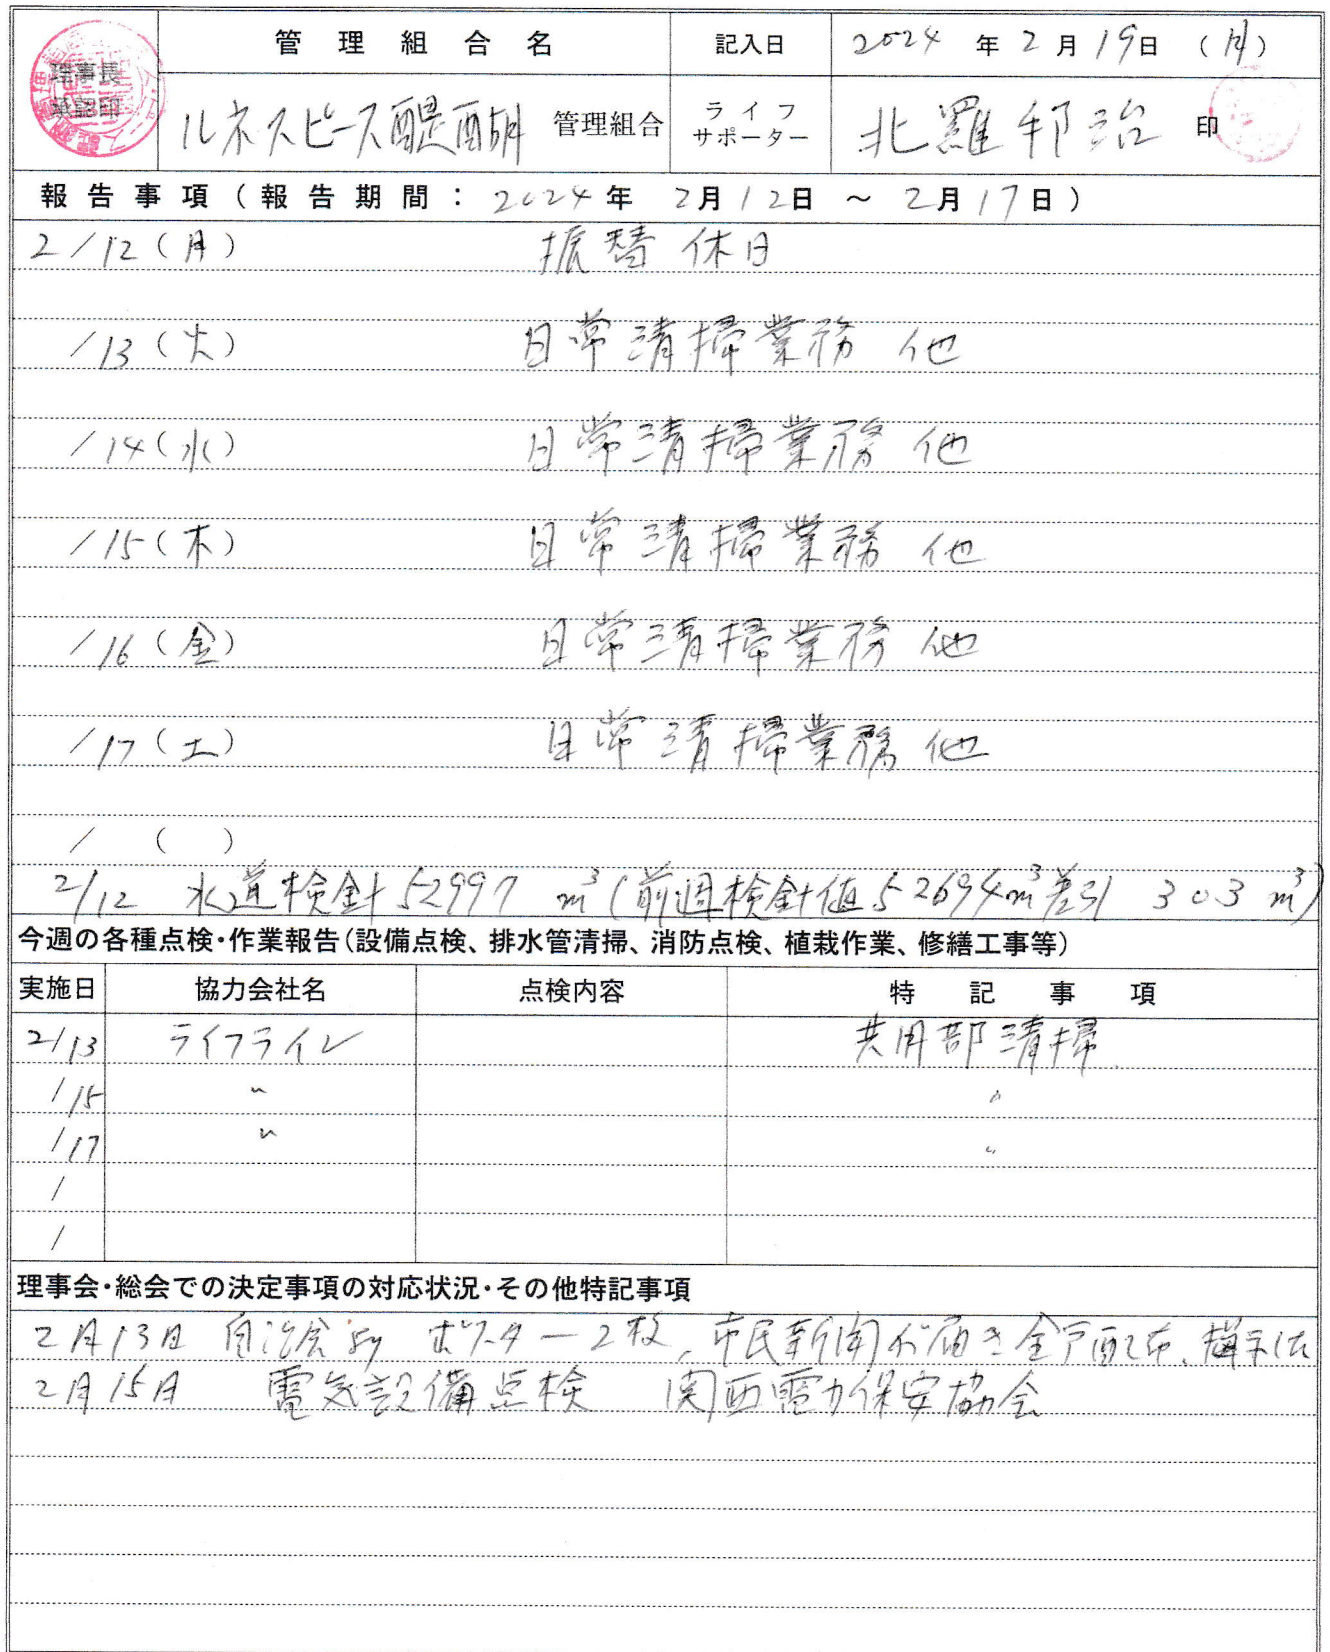 管理組合名 記入日 2024年2月19日(月)
理事長
承認印
ルネスピース醍醐 管理組合 ライフサポーター 北羅邦治 印
報告事項(報告期間:2024年 2月12日 ~ 2月17日)
2/12(月) 振替休日
/13(火) 日常清掃業務 他
/14(水) 日常清掃業務 他
/15(木) 日常清掃業務 他
/16(金) 日常清掃業務 他
/17(土) 日常清掃業務 他
/ ( )
2/12 水道検針 52997 m³(前週検針値52694m³差引 303m³)
今週の各種点検・作業報告(設備点検、排水管清掃、消防点検、植栽作業、修繕工事等)
実施日 協力会社名 点検内容 特記事項
2/13 ライフライン 共用部清掃
/15 〃 〃
/17 〃 〃
/
/
理事会・総会での決定事項の対応状況・その他特記事項
2月13日 自治会より ポスター2枚、市民新聞が届き全戸配布、掲示
2月15日 電気設備点検 関西電力保安協会